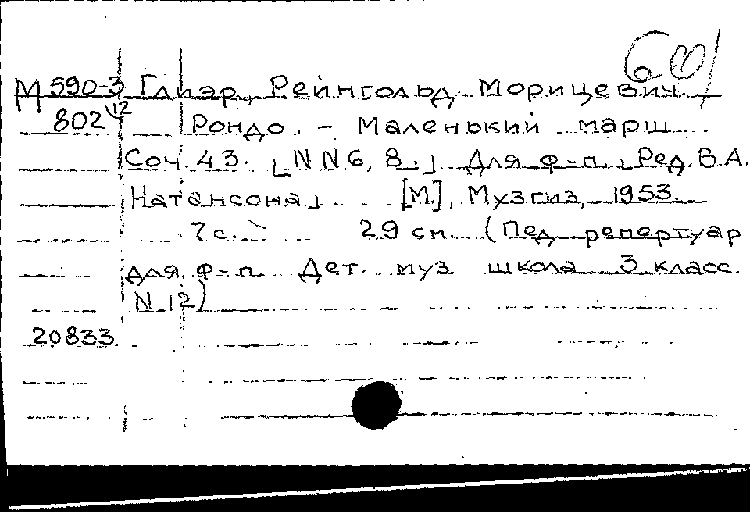 60/
М 590-3 Глиэр, Рейнгольд Морицевич
802 V12 Рондо. - Маленький марш
Соч. 43. [NN 6, 8.] Для ф-п. [Ред. В.А.
Натансона]. [М.], Музгиз, 1953.
7 с. 29 см. (Пед. репертуар
для ф-п. Дет. муз. школа 3 класс.
N 12)
20833